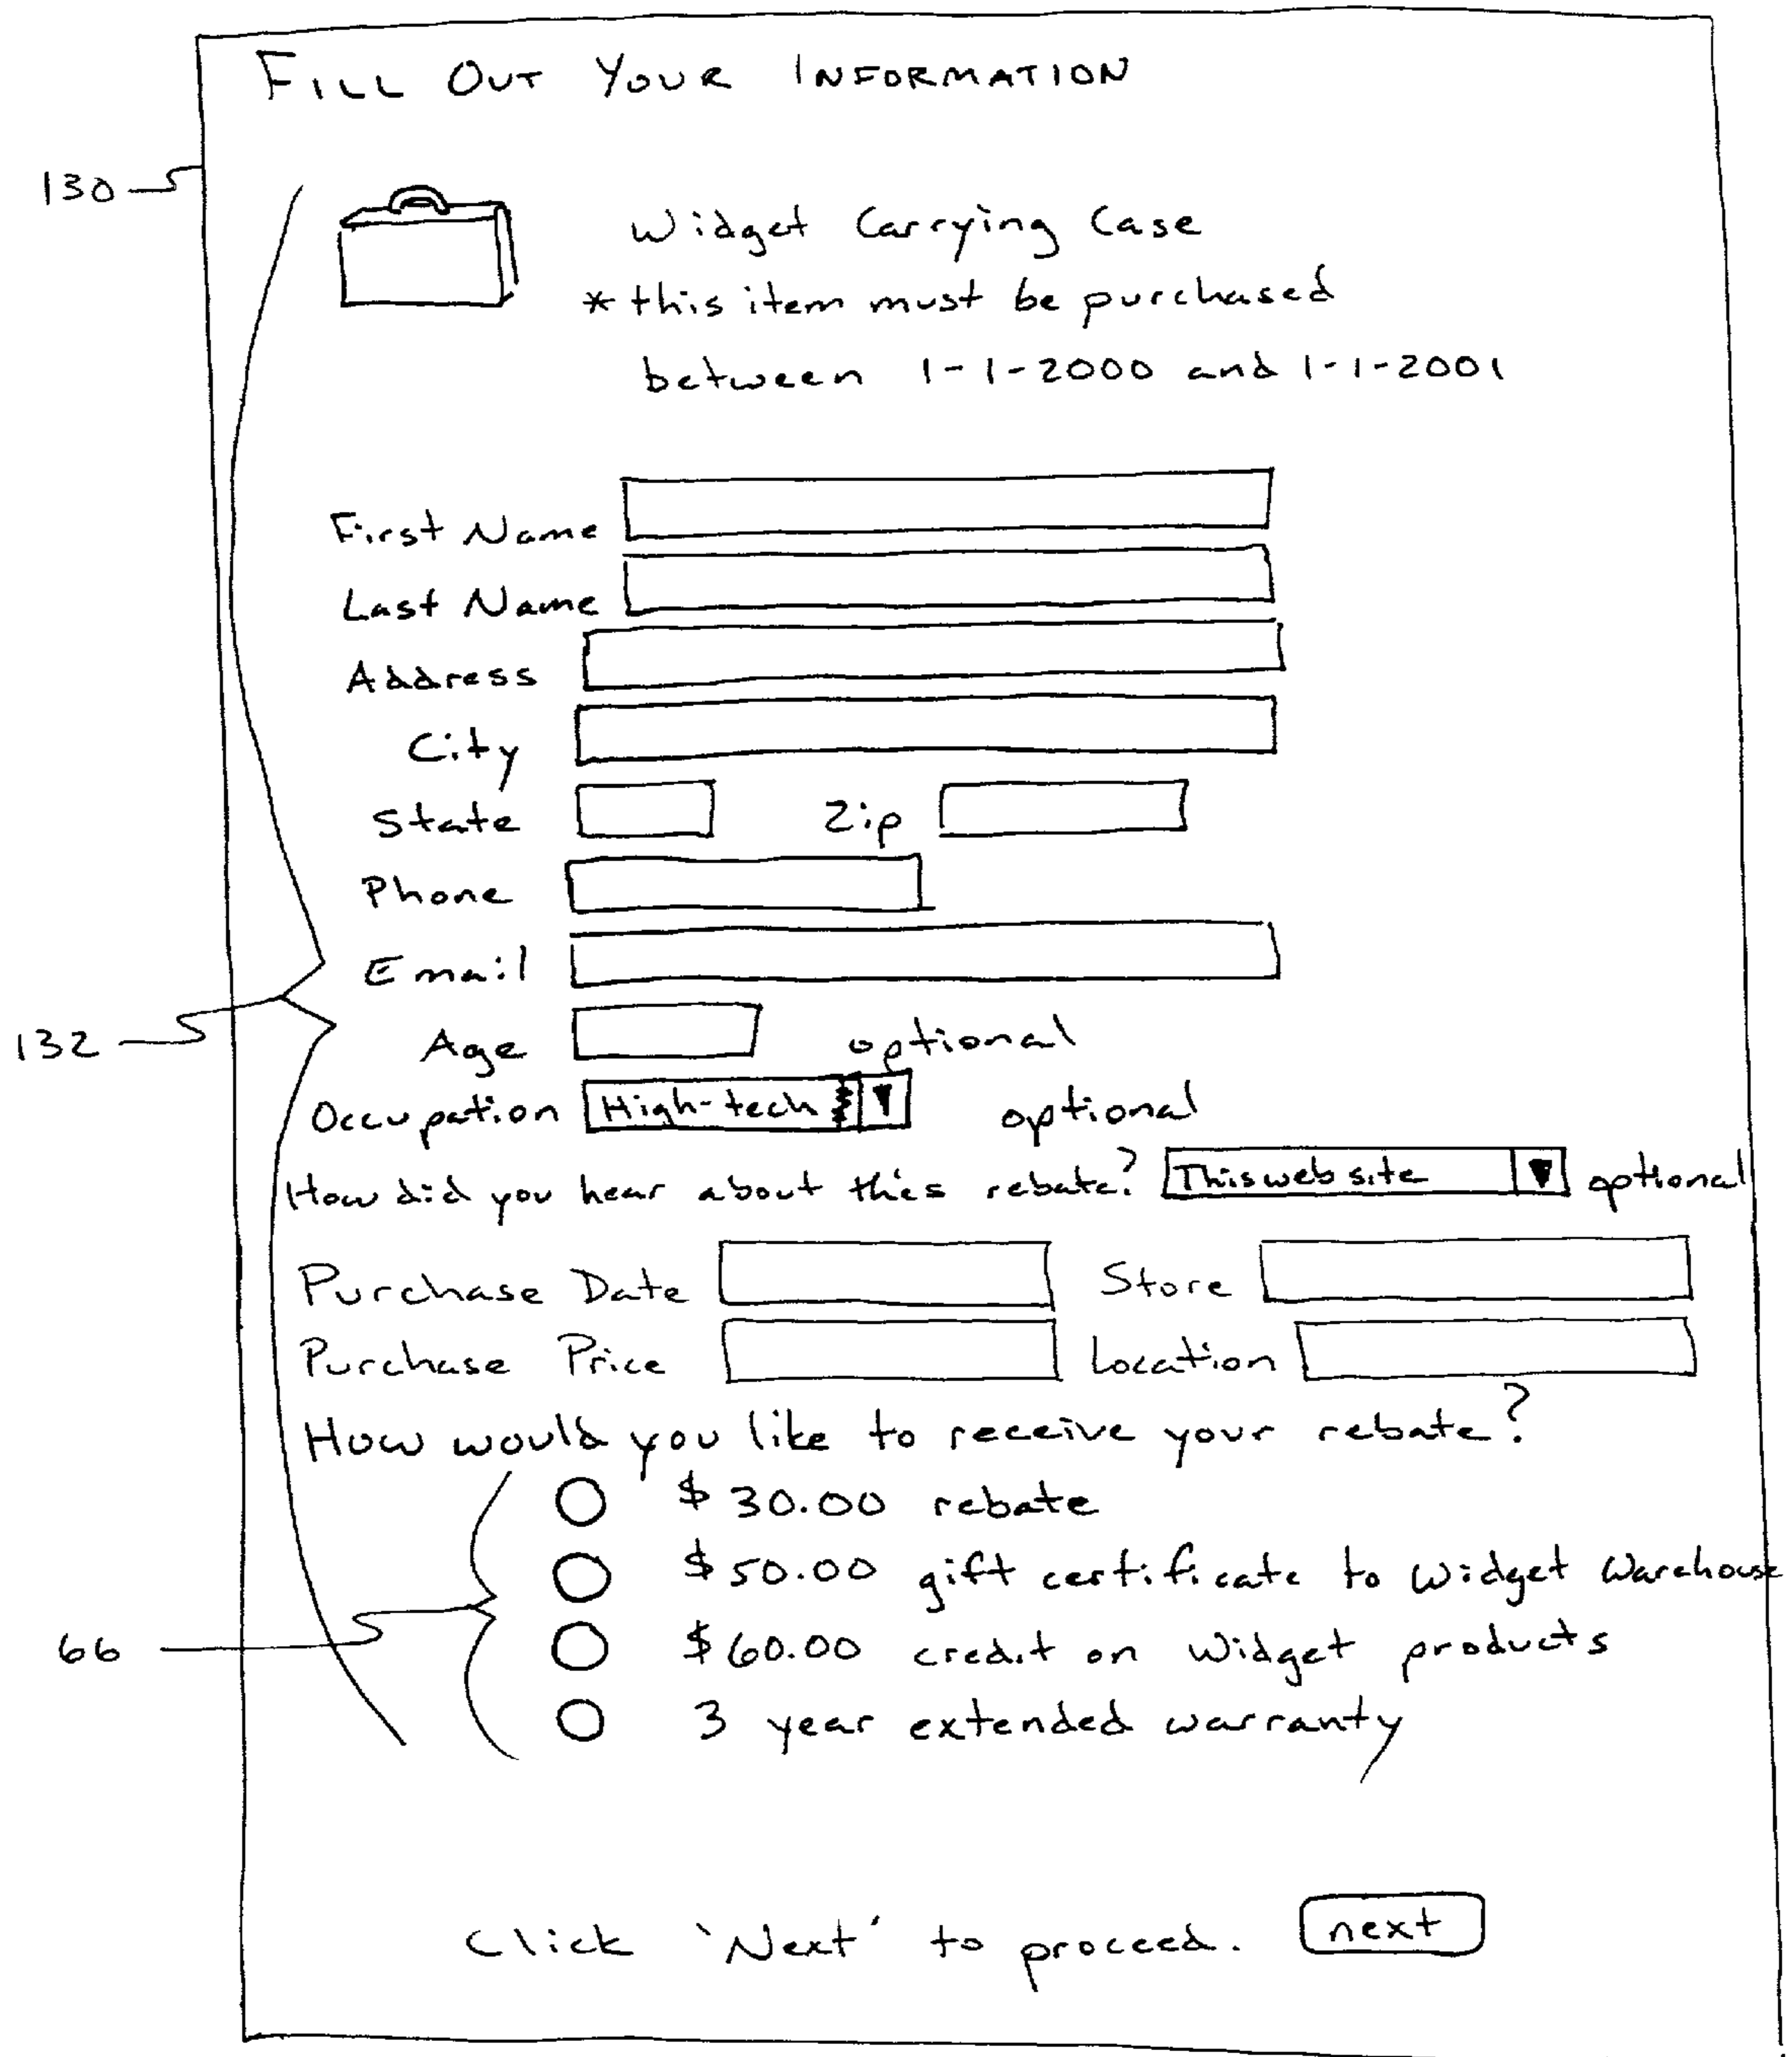 FILL OUT YOUR INFORMATION
130
Widget Carrying Case
* this item must be purchased
between 1-1-2000 and 1-1-2001
First Name
Last Name
Address
City
State Zip
Phone
Email
132
Age optional
Occupation High-tech optional
How did you hear about this rebate? This web site optional
Purchase Date Store
Purchase Price Location
How would you like to receive your rebate?
$30.00 rebate
$50.00 gift certificate to Widget Warehouse
66
$60.00 credit on Widget products
3 year extended warranty
Click 'Next' to proceed. next